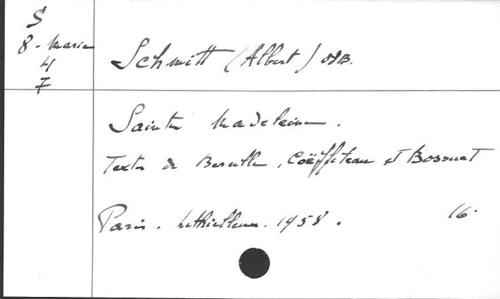 S
8 - Marie
4
7
Schmitt (Albert) OSB.
Sainte Madeleine.
Textes de Berulle, Coëffeteau et Bossuet
Paris. Lethielleux. 1958. 16°